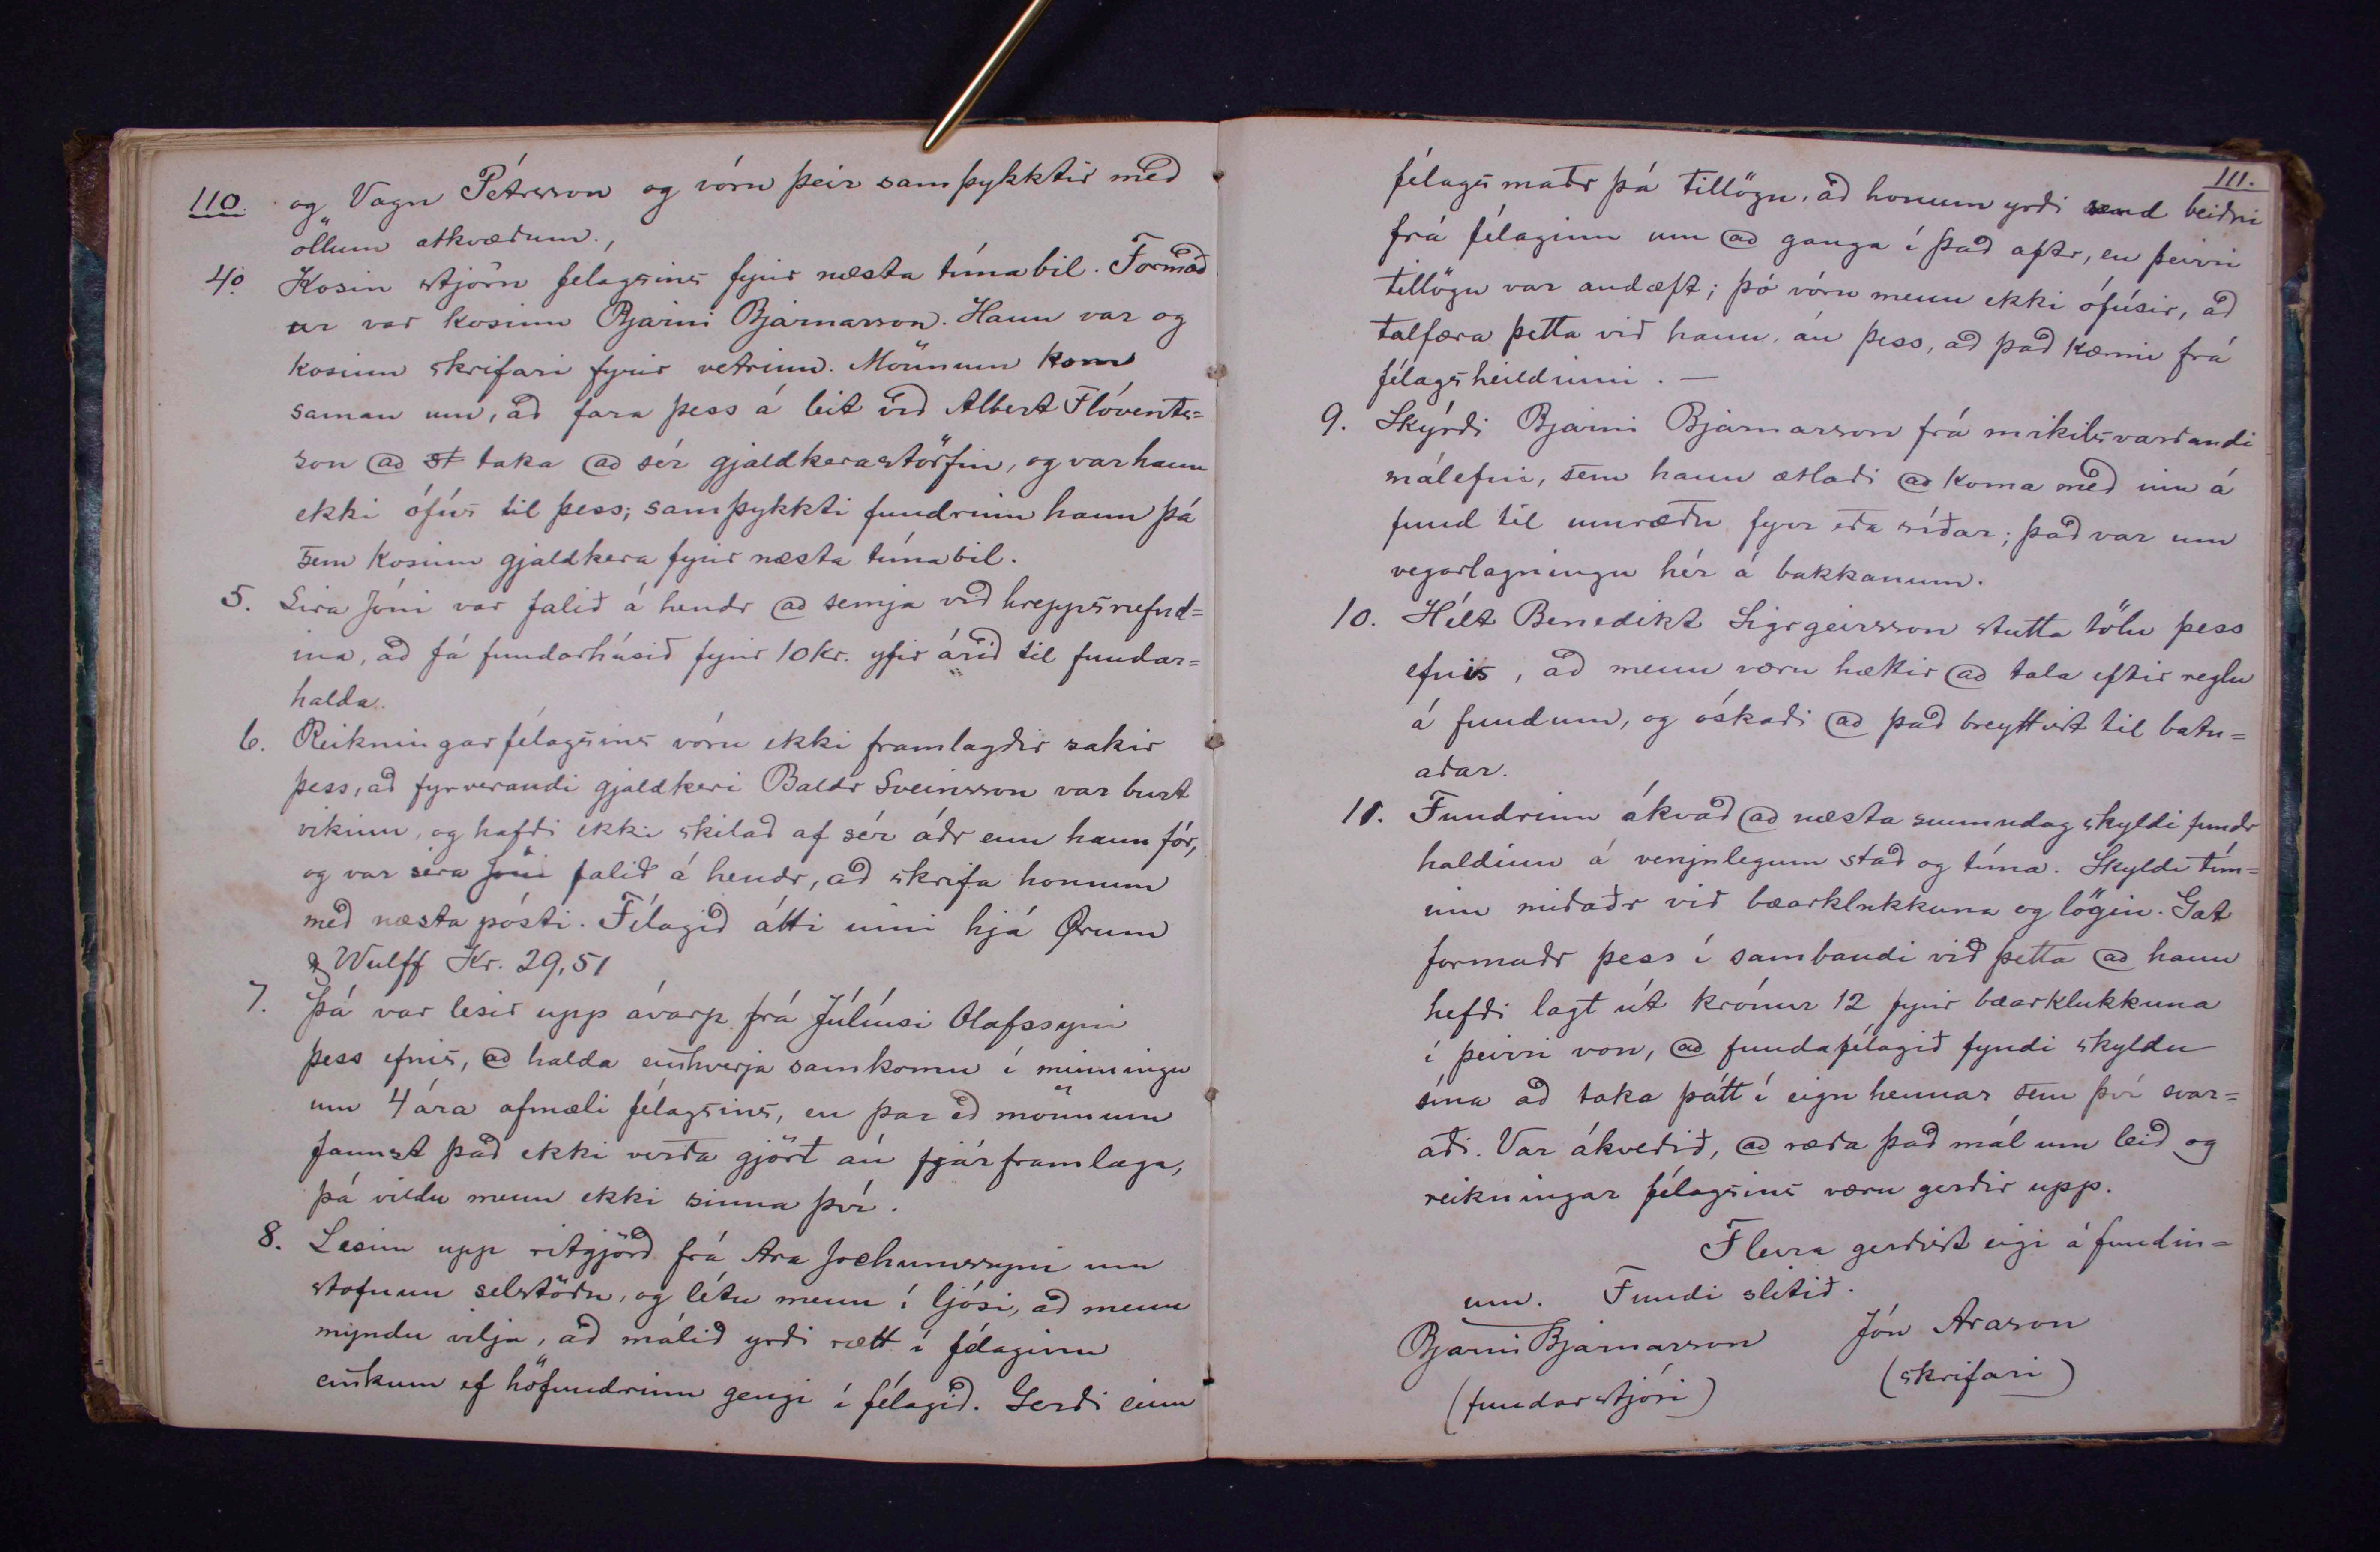 110. og Vagn Pétrsson og vóru þeir samþykktir með
öllum atkvæðum.
4º Kosin stjórn felagsins fyrir næsta tímabil. Formað
ur var kosinn Bjarni Bjarnarson. Hann var og
kosinn skrifari fyrir vetrinn. Mönnum kom
saman um, að fara þess á leit við Albert Flóvents=
son að st taka að sér gjaldkerastörfin, og var hann
ekki ófús til þess; samþykkti fundrinn hann þá
sem kosinn gjaldkera fyrir næsta tímabil.
5. Sira Jóni var falið á hendr að semja við hreppsnefnd=
ina, að fá fundarhúsið fyrir 10 kr. yfir árið til fundar=
halda.
6. Reikningar félagsins vóru ekki framlagðir sakir
þess, að fyrverandi gjaldkeri Baldr Sveinsson var burt
vikinn, og hafði ekki skilað af sér áðr enn hann fór,
og var síra Jóni falið á hendr, að skrifa honum
með næsta pósti. Félagið átti inni hjá Ørum
& Wulff Kr. 29,51
7. Þá var lesið upp ávarp frá Júlíusi Olafssyni
þess efnis, að halda einhverja samkomu í minningu
um 4 ára afmæli félagsins, en þar eð mönnum
fannst það ekki verða gjört án fjárframlaga,
þá vildu menn ekki sinna því.
8. Lesin upp ritgjörð frá Ara Jochumssyni um
stofnun selstöðu, og létu menn í ljósi, að menn
myndu vilja, að málið yrði rætt í félaginu
einkum ef höfundrinn gengi í félagið. Gerði einn
111.
félagsmaðr þá tillögu, að honum yrði send beiðni
frá félaginu um að ganga í það aftr, en þeirri
tillögu var andæft; þó vóru menn ekki ófúsir, að
talfæra þetta við hann, án þess, að það kæmi frá
félagsheildinni. —
9. Skýrði Bjarni Bjarnarson frá mikilsvarðandi
málefni, sem hann ætlaði að koma með inn á
fund til umræðu fyrr eða síðar; það var um
vegarlagningu hér á bakkanum.
10. Hélt Benedikt Sigrgeirsson stutta tölu þess
efnis, að menn væru hættir að tala eftir reglu
á fundum, og óskaði að það breyttist til batn=
aðar.
11. Fundrinn ákvað að næsta sunnudag skyldi fundr
haldinn á venjulegum stað og tíma. Skyldi tím=
inn miðaðr við bæarklukkuna og lögin. Gat
formaðr þess í sambandi við þetta að hann
hefði lagt út krónur 12 fyrir bæarklukkuna
í þeirri von, að fundafélagið fyndi skyldu
sína að taka þátt í eign hennar sem því svar=
aði. Var ákveðið, að ræða það mál um leið og
reikningar félagsins væru gerðir upp.
Fleira gerðist eigi á fundin=
um. Fundi slitið.
Bjarni Bjarnarson Jón Arason
(fundarstjóri) (skrifari)